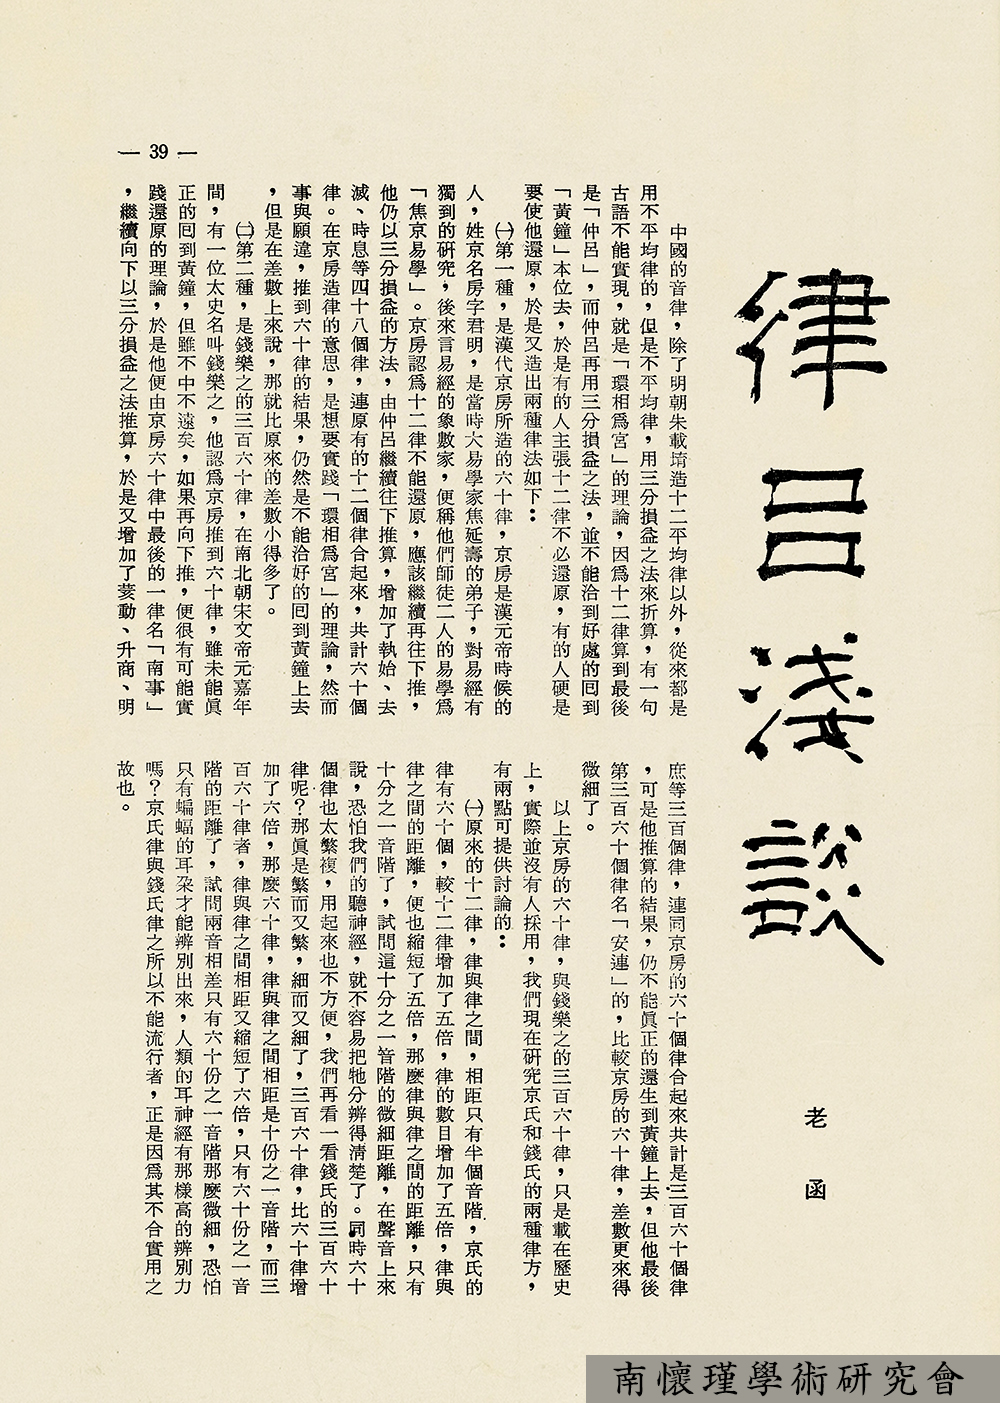 律呂淺談
老函
中國的音律，除了明朝朱載堉造十二平均律以外，從來都是
用不平均律的，但是不平均律，用三分損益之法來折算，有一句
古語不能實現，就是「環相爲宮」的理論，因爲十二律算到最後
是「仲呂」，而仲呂再用三分損益之法，並不能洽到好處的囘到
「黃鐘」本位去，於是有的人主張十二律不必還原，有的人硬是
要使他還原，於是又造出兩種律法如下：
㈠第一種，是漢代京房所造的六十律，京房是漢元帝時候的
人，姓京名房字君明，是當時大易學家焦延壽的弟子，對易經有
獨到的研究，後來言易經的象數家，便稱他們師徒二人的易學爲
「焦京易學」。京房認爲十二律不能還原，應該繼續再往下推，
他仍以三分損益的方法，由仲呂繼續往下推算，增加了執始、去
滅、時息等四十八個律，連原有的十二個律合起來，共計六十個
律。在京房造律的意思，是想要實踐「環相爲宮」的理論，然而
事與願違，推到六十律的結果，仍然是不能洽好的囘到黃鐘上去
，但是在差數上來說，那就比原來的差數小得多了。
㈡第二種，是錢樂之的三百六十律，在南北朝宋文帝元嘉年
間，有一位太史名叫錢樂之，他認爲京房推到六十律，雖未能眞
正的囘到黃鐘，但雖不中不遠矣，如果再向下推，便很有可能實
踐還原的理論，於是他便由京房六十律中最後的一律名「南事」
，繼續向下以三分損益之法推算，於是又增加了荄動、升商、明
庶等三百個律，連同京房的六十個律合起來共計是三百六十個律
，可是他推算的結果，仍不能眞正的還生到黃鐘上去，但他最後
第三百六十個律名「安運」的，比較京房的六十律，差數更來得
微細了。
以上京房的六十律，與錢樂之的三百六十律，只是載在歷史
上，實際並沒有人採用，我們現在研究京氏和錢氏的兩種律方，
有兩點可提供討論的：
㈠原來的十二律，律與律之間，相距只有半個音階，京氏的
律有六十個，較十二律增加了五倍，律的數目增加了五倍，律與
律之間的距離，便也縮短了五倍，那麼律與律之間的距離，只有
十分之一音階了，試問這十分之一音階的微細距離，在聲音上來
說，恐怕我們的聽神經，就不容易把牠分辨得清楚了。同時六十
個律也太繁複，用起來也不方便，我們再看一看錢氏的三百六十
律呢？那眞是繁而又繁，細而又細了，三百六十律，比六十律增
加了六倍，那麼六十律，律與律之間相距是十份之一音階，而三
百六十律者，律與律之間相距又縮短了六倍，只有六十份之一音
階的距離了，試問兩音相差只有六十份之一音階那麼微細，恐怕
只有蝙蝠的耳朶才能辨別出來，人類的耳神經有那樣高的辨別力
嗎？京氏律與錢氏律之所以不能流行者，正是因爲其不合實用之
故也。
— 39 —
南懷瑾學術研究會